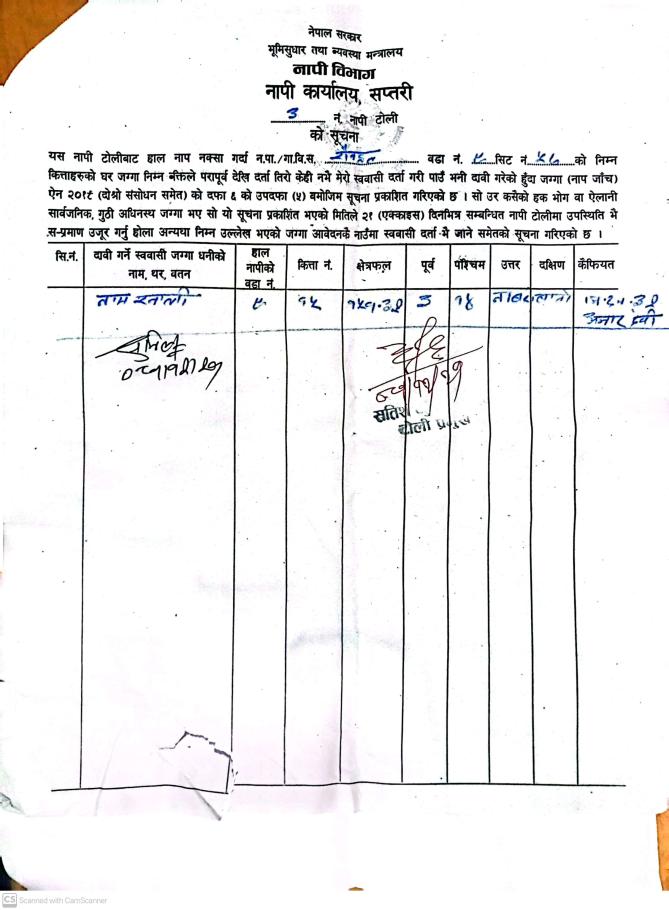 नेपाल सरकार
भूमिसुधार तथा व्यवस्था मन्त्रालय
नापी विभाग
नापी कार्यालय, सप्तरी
३ नं. नापी टोली
को सूचना
यस नापी टोलीबाट हाल नाप नक्सा गर्दा न.पा./गा.वि.स. वडा नं. ५ सिट नं. को निम्न
कित्ताहरुको घर जग्गा निम्न ब्यक्तिले परापूर्व देखि दर्ता तिरो केही नभै मेरो स्ववासी दर्ता गरी पाउँ भनी दावी गरेको हुँदा जग्गा (नाप जाँच)
ऐन २०१९ (दोश्रो संसोधन समेत) को दफा ६ को उपदफा (५) बमोजिम सूचना प्रकाशित गरिएको छ । सो उर कसैको हक भोग वा ऐलानी
सार्वजनिक, गुठी अधिनस्थ जग्गा भए सो यो सूचना प्रकाशित भएको मितिले २१ (एक्काइस) दिनभित्र सम्बन्धित नापी टोलीमा उपस्थिति भै
स-प्रमाण उजूर गर्नु होला अन्यथा निम्न उल्लेख भएको जग्गा आवेदनकै नाउँमा स्ववासी दर्ता भै जाने समेतको सूचना गरिएको छ ।
सि.नं. दावी गर्ने स्ववासी जग्गा धनीको नाम, थर, वतन हाल नापीको वडा नं. कित्ता नं. क्षेत्रफल पूर्व पश्चिम उत्तर दक्षिण कैफियत
५ १५ ३ १४
टोली प्रमुख
CS Scanned with CamScanner